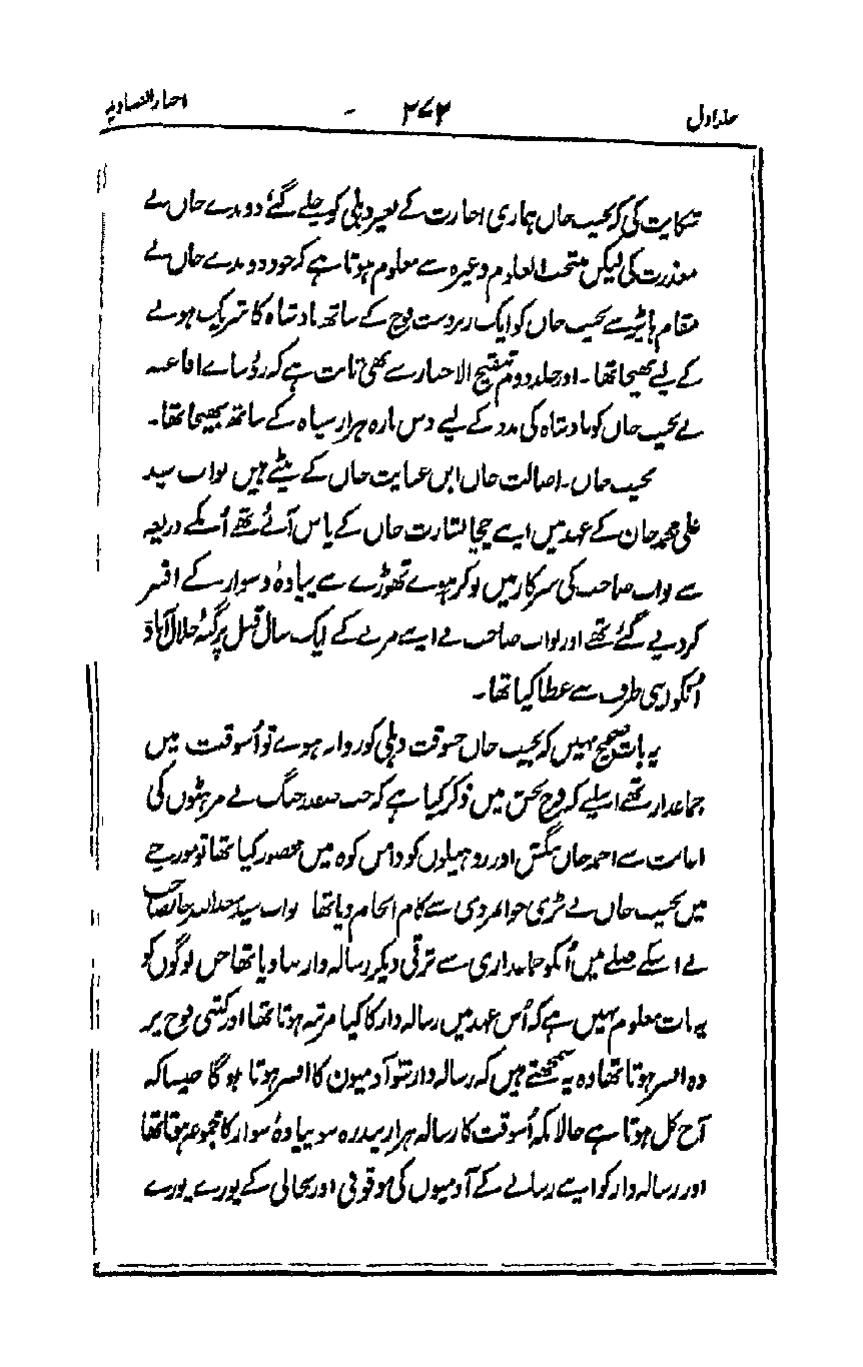 جلد اول
۲۷۲
اخبار الصنادید
شکایت کی کہ نجیب خاں ہماری اجازت کے بغیر دہلی کو چلے گئے دوندے خاں نے
معذرت کی لیکن منتخب العلوم وغیرہ سے معلوم ہوتا ہے کہ خود دوندے خاں نے
مقام ہاپڑ سے نجیب خاں کو ایک زبردست فوج کے ساتھ بادشاہ کا شریک ہونے
کے لیے بھیجا تھا۔ اور جلد دوم تنقیح الاخبار سے بھی ثابت ہے کہ رؤساے افاغنہ
نے نجیب خاں کو بادشاہ کی مدد کے لیے دس بارہ ہزار سپاہ کے ساتھ بھیجا تھا۔
نجیب خاں۔ اصالت خاں ابن عنایت خاں کے بیٹے ہیں نواب سید
علی محمد خان کے عہد میں اپنے چچا بشارت خاں کے پاس آئے تھے اُنکے ذریعہ
سے نواب صاحب کی سرکار میں نوکر ہوے تھوڑے سے پیادہ و سوار کے افسر
کر دیے گئے تھے اور نواب صاحب نے اپنے مرنے کے ایک سال قبل پرگنہ جلال آباد
اُنکو اپنی طرف سے عطا کیا تھا۔
یہ بات صحیح نہیں کہ نجیب خاں جسوقت دہلی کو روانہ ہوے تو اُسوقت میں
جماعدار تھے اسلیے کہ فرح بخش میں ذکر کیا ہے کہ جب صفدر جنگ نے مرہٹوں کی
اعانت سے احمد خاں بنگش اور روہیلوں کو دامن کوہ میں محصور کیا تھا تو مورچے
میں نجیب خاں نے بڑی جوانمردی سے کام انجام دیا تھا نواب سید سعد اللہ خاں صاحب
نے اسکے صلے میں اُنکو جماعداری سے ترقی دیکر رسالہ دار بنا دیا تھا جن لوگوں کو
یہ بات معلوم نہیں ہے کہ اُس عہد میں رسالہ دار کا کیا مرتبہ ہوتا تھا اور کتنی فوج پر
وہ افسر ہوتا تھا وہ یہ سمجھتے ہیں کہ رسالہ دار سَو آدمیون کا افسر ہوتا ہوگا جیسا کہ
آج کل ہوتا ہے حالانکہ اُسوقت کا رسالہ ہزار پندرہ سو پیادہ سوار کا مجموعہ ہوتا تھا
اور رسالہ دار کو اپنے رسالے کے آدمیوں کی موقوفی اور بحالی کے پورے پورے